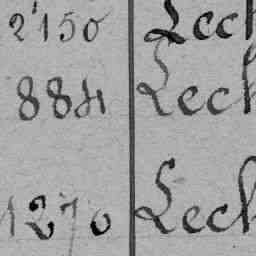 2'150 Lech
884 Lech
1270 Lech